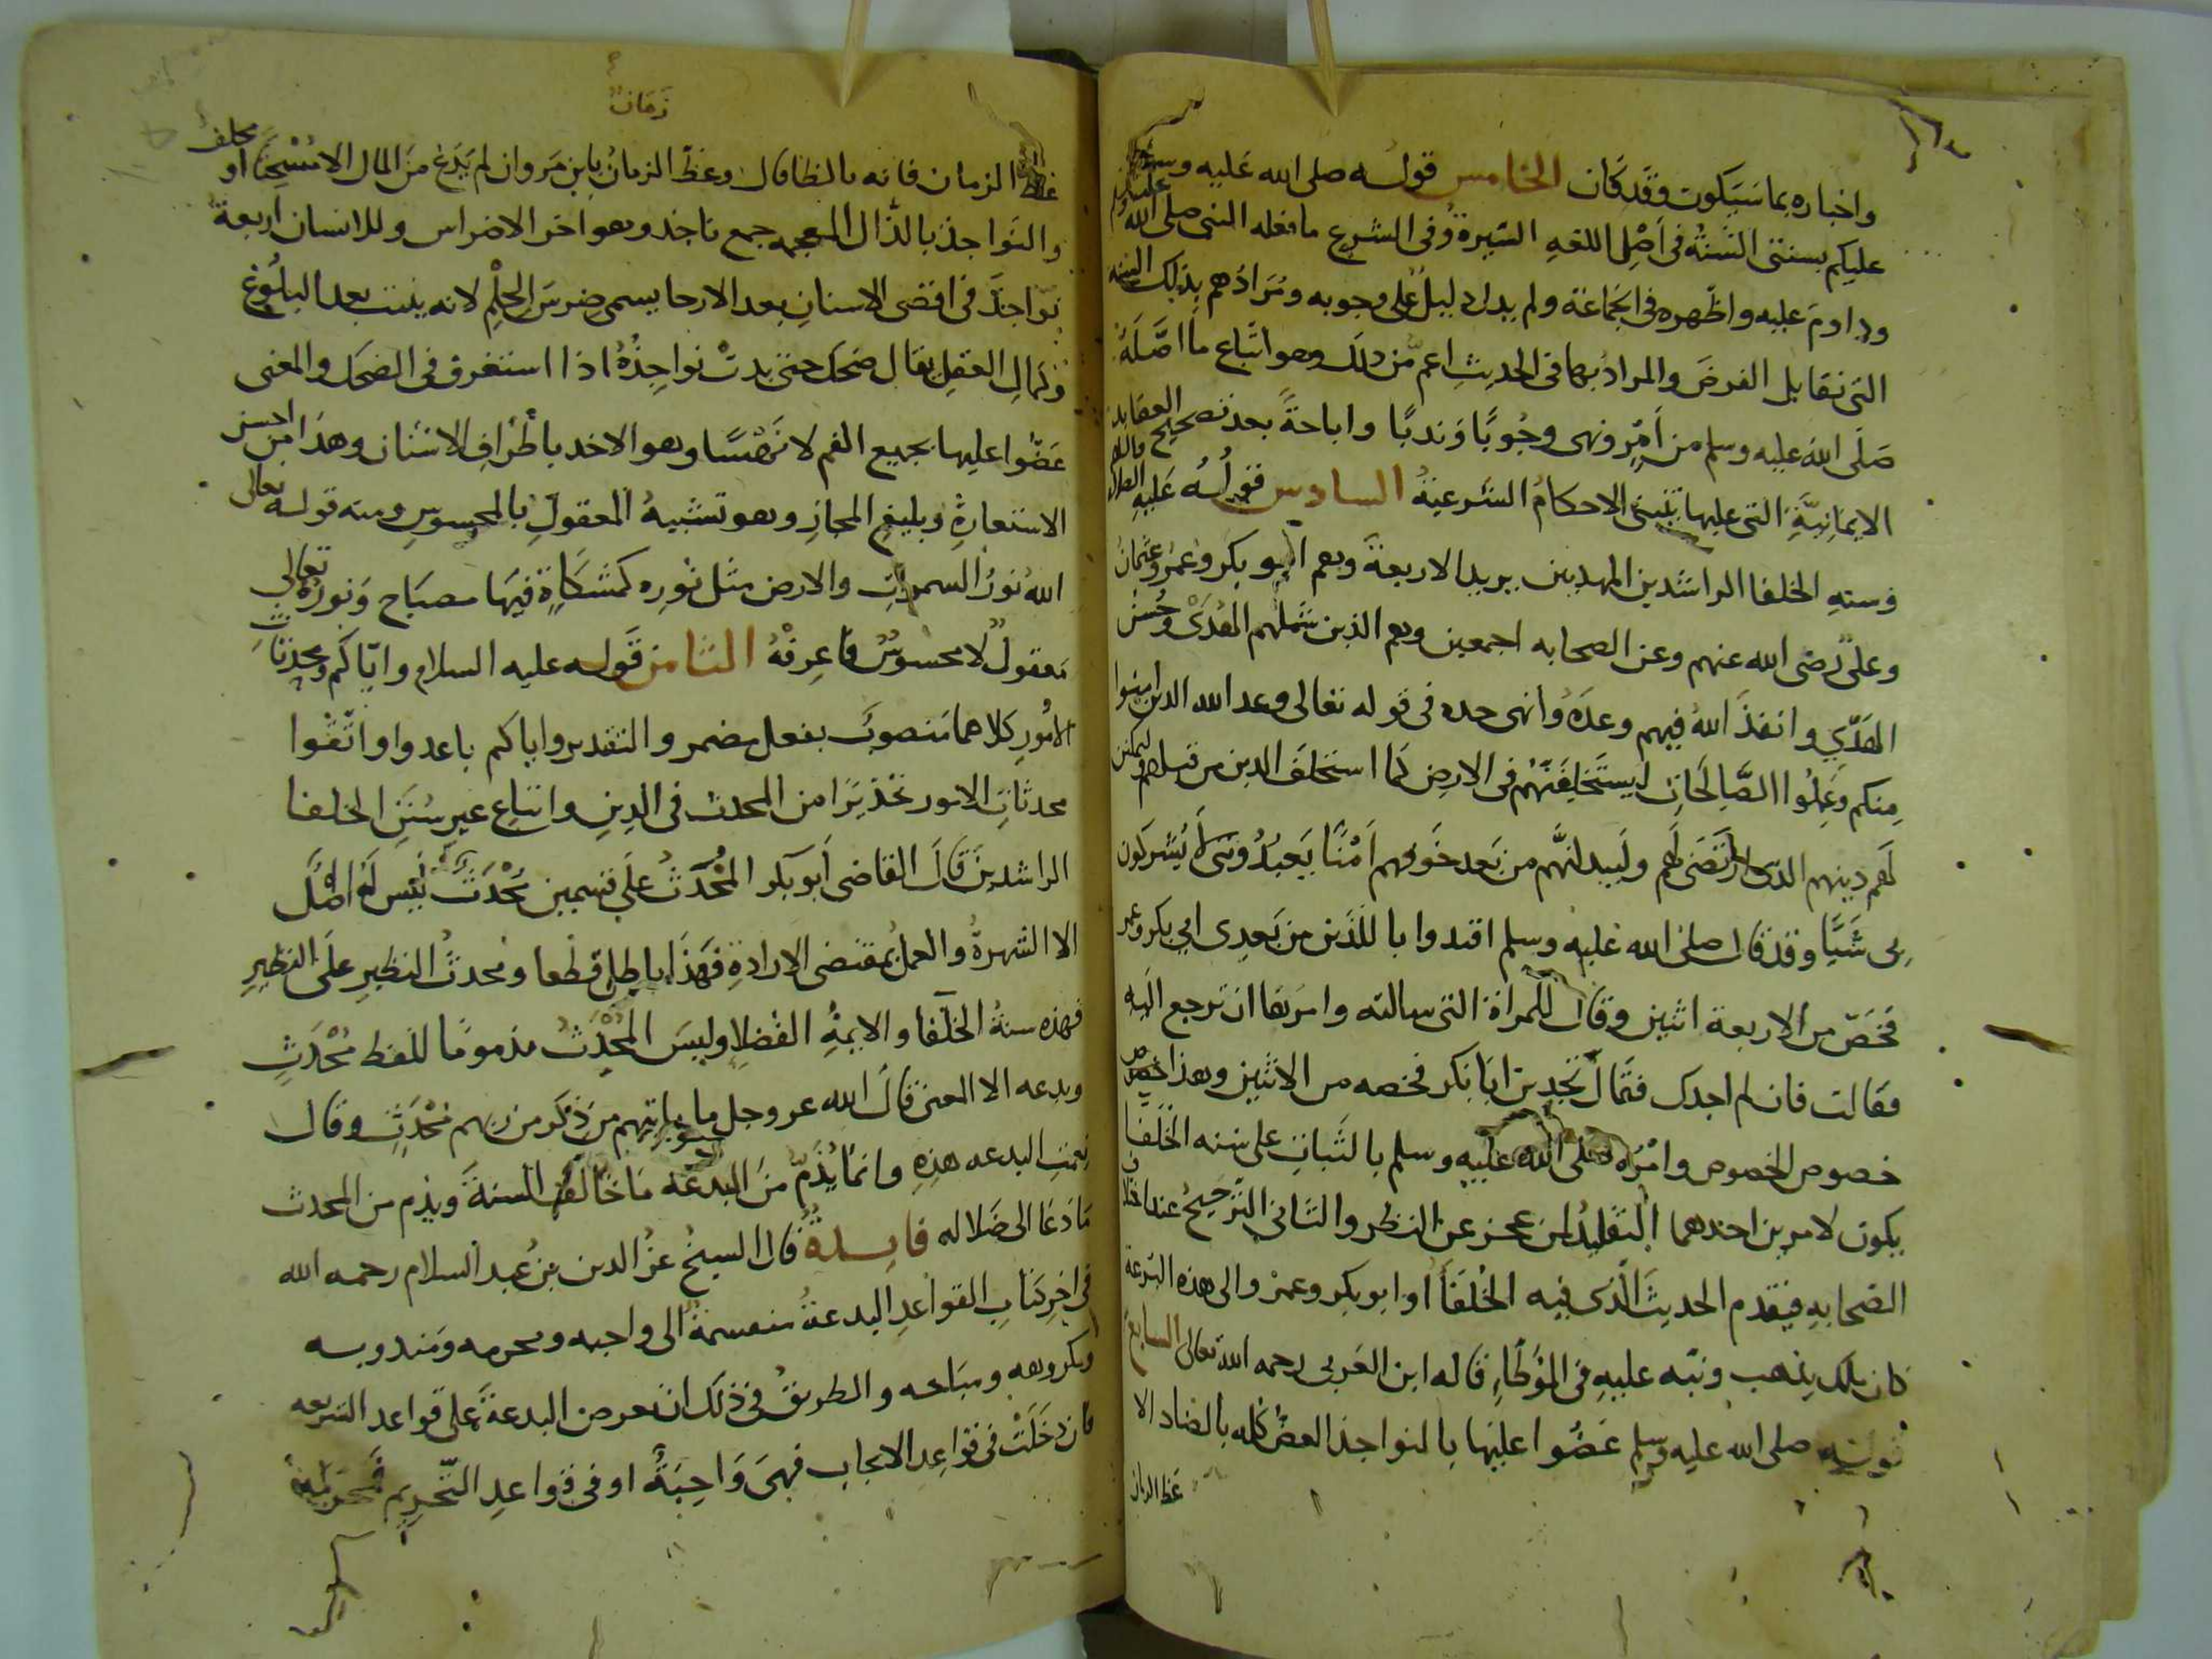 واخباره بما سيكون وقد كان الخامس قوله صلى الله عليه وسلم
عليكم بسنتي السنة في اصل اللغه السيرة وفي الشرع ما فعله النبي صلى الله عليه وسلم
وداوم عليه واظهره في الجماعة ولم يدل دليل على وجوبه ومرادهم بذلك السنه
التي تقابل الفرض والمراد بها في الحديث اعم من ذلك وهو اتباع ما اصله
صلى الله عليه وسلم من امر ونهى وجوبا وندبا واباحة بعد تصحيح العقايد
الايمانية التي عليها تنبني الاحكام الشرعية السادس قوله عليه الصلاة والسلام
وسنه الخلفا الراشدين المهديين يريد الاربعة وهم ابو بكر وعمر وعثمان
وعلي رضى الله عنهم وعن الصحابه اجمعين وهم الذين شملهم الهدى وحسن
الهدي وانفذ الله فيهم وعده وانهى حده في قوله تعالى وعد الله الذين امنوا
منكم وعملوا الصالحات ليستخلفنهم في الارض كما استخلف الذين من قبلهم وليمكنن
لهم دينهم الذي ارتضى لهم وليبدلنهم من بعد خوفهم امنا يعبدونني لا يشركون
بي شيا وقد قال صلى الله عليه وسلم اقتدوا باللذين من بعدي ابي بكر وعمر
فخص من الاربعة اثنين وقال للمراة التي سالته وامرها ان ترجع اليه
فقالت فان لم اجدك فقال تجدين ابا بكر فخصه من الاثنين وهذا خصوص
خصوص الخصوص وامره صلى الله عليه وسلم بالثبات على سنه الخلفا
يكون لامرين احدهما التقليد لمن عجز عن النظر والثاني الترجيح عند اختلاف
الصحابه فيقدم الحديث الذي فيه الخلفا او ابو بكر وعمر والى هذه النزعة
كان ملك يذهب ونبه عليه في الموطا قاله ابن العربي رحمه الله تعالى السابع
قوله صلى الله عليه وسلم عضوا عليها بالنواجذ العض كله بالضاد الا
عظ الزمان
زمان
عظ الزمان فانه بالظا قال وعظ الزمان يا بن مروان لم يدع من المال الا مسحتا او مجلف
والنواجذ بالذال المعجمه جمع ناجذ وهو اخر الاضراس وللانسان اربعة
نواجذ في اقصى الاسنان بعد الارحا يسمى ضرس الحلم لانه ينبت بعد البلوغ
وكمال العقل يقال ضحك حتى بدت نواجذه اذا استغرق في الضحك والمعنى
عضوا عليها بجميع الفم لا نهسا وهو الاخد باطراف الاسنان وهذا من احسن
الاستعارة وبليغ المجاز وهو تشبيه المعقول بالمحسوس ومنه قوله تعالى
الله نور السموات والارض مثل نوره كمشكاة فيها مصباح ونوره تعالى
معقول لا محسوس فاعرفه الثامن قوله عليه السلام واياكم ومحدثات
الامور كلاهما منصوب بفعل مضمر والتقدير واياكم باعدوا واتقوا
محدثات الامور تحذيرا من المحدث في الدين واتباع غير سنن الخلفا
الراشدين قال القاضي ابو بكر المحدث على قسمين محدث ليس له اصل
الا الشهرة والعمل بمقتضى الارادة فهذا باطل قطعا ومحدث النظير على النظير
فهذه سنة الخلفا والايمة الفضلا وليس المحدث مذموما للفظ محدث
وبدعه الا المعنى قال الله عز وجل ما ياتيهم من ذكر من ربهم محدث وقال
نعمت البدعه هذه وانما يذم من البدعة ما خالف السنة ويذم من المحدث
ما دعا الى ضلاله فايدة قال الشيخ عز الدين بن عبد السلام رحمه الله
في اخر كتاب القواعد البدعة منقسمة الى واجبه ومحرمه ومندوبه
ومكروهه ومباحه والطريق في ذلك ان تعرض البدعة على قواعد الشريعه
فان دخلت في قواعد الايجاب فهي واجبة او في قواعد التحريم فمحرمة